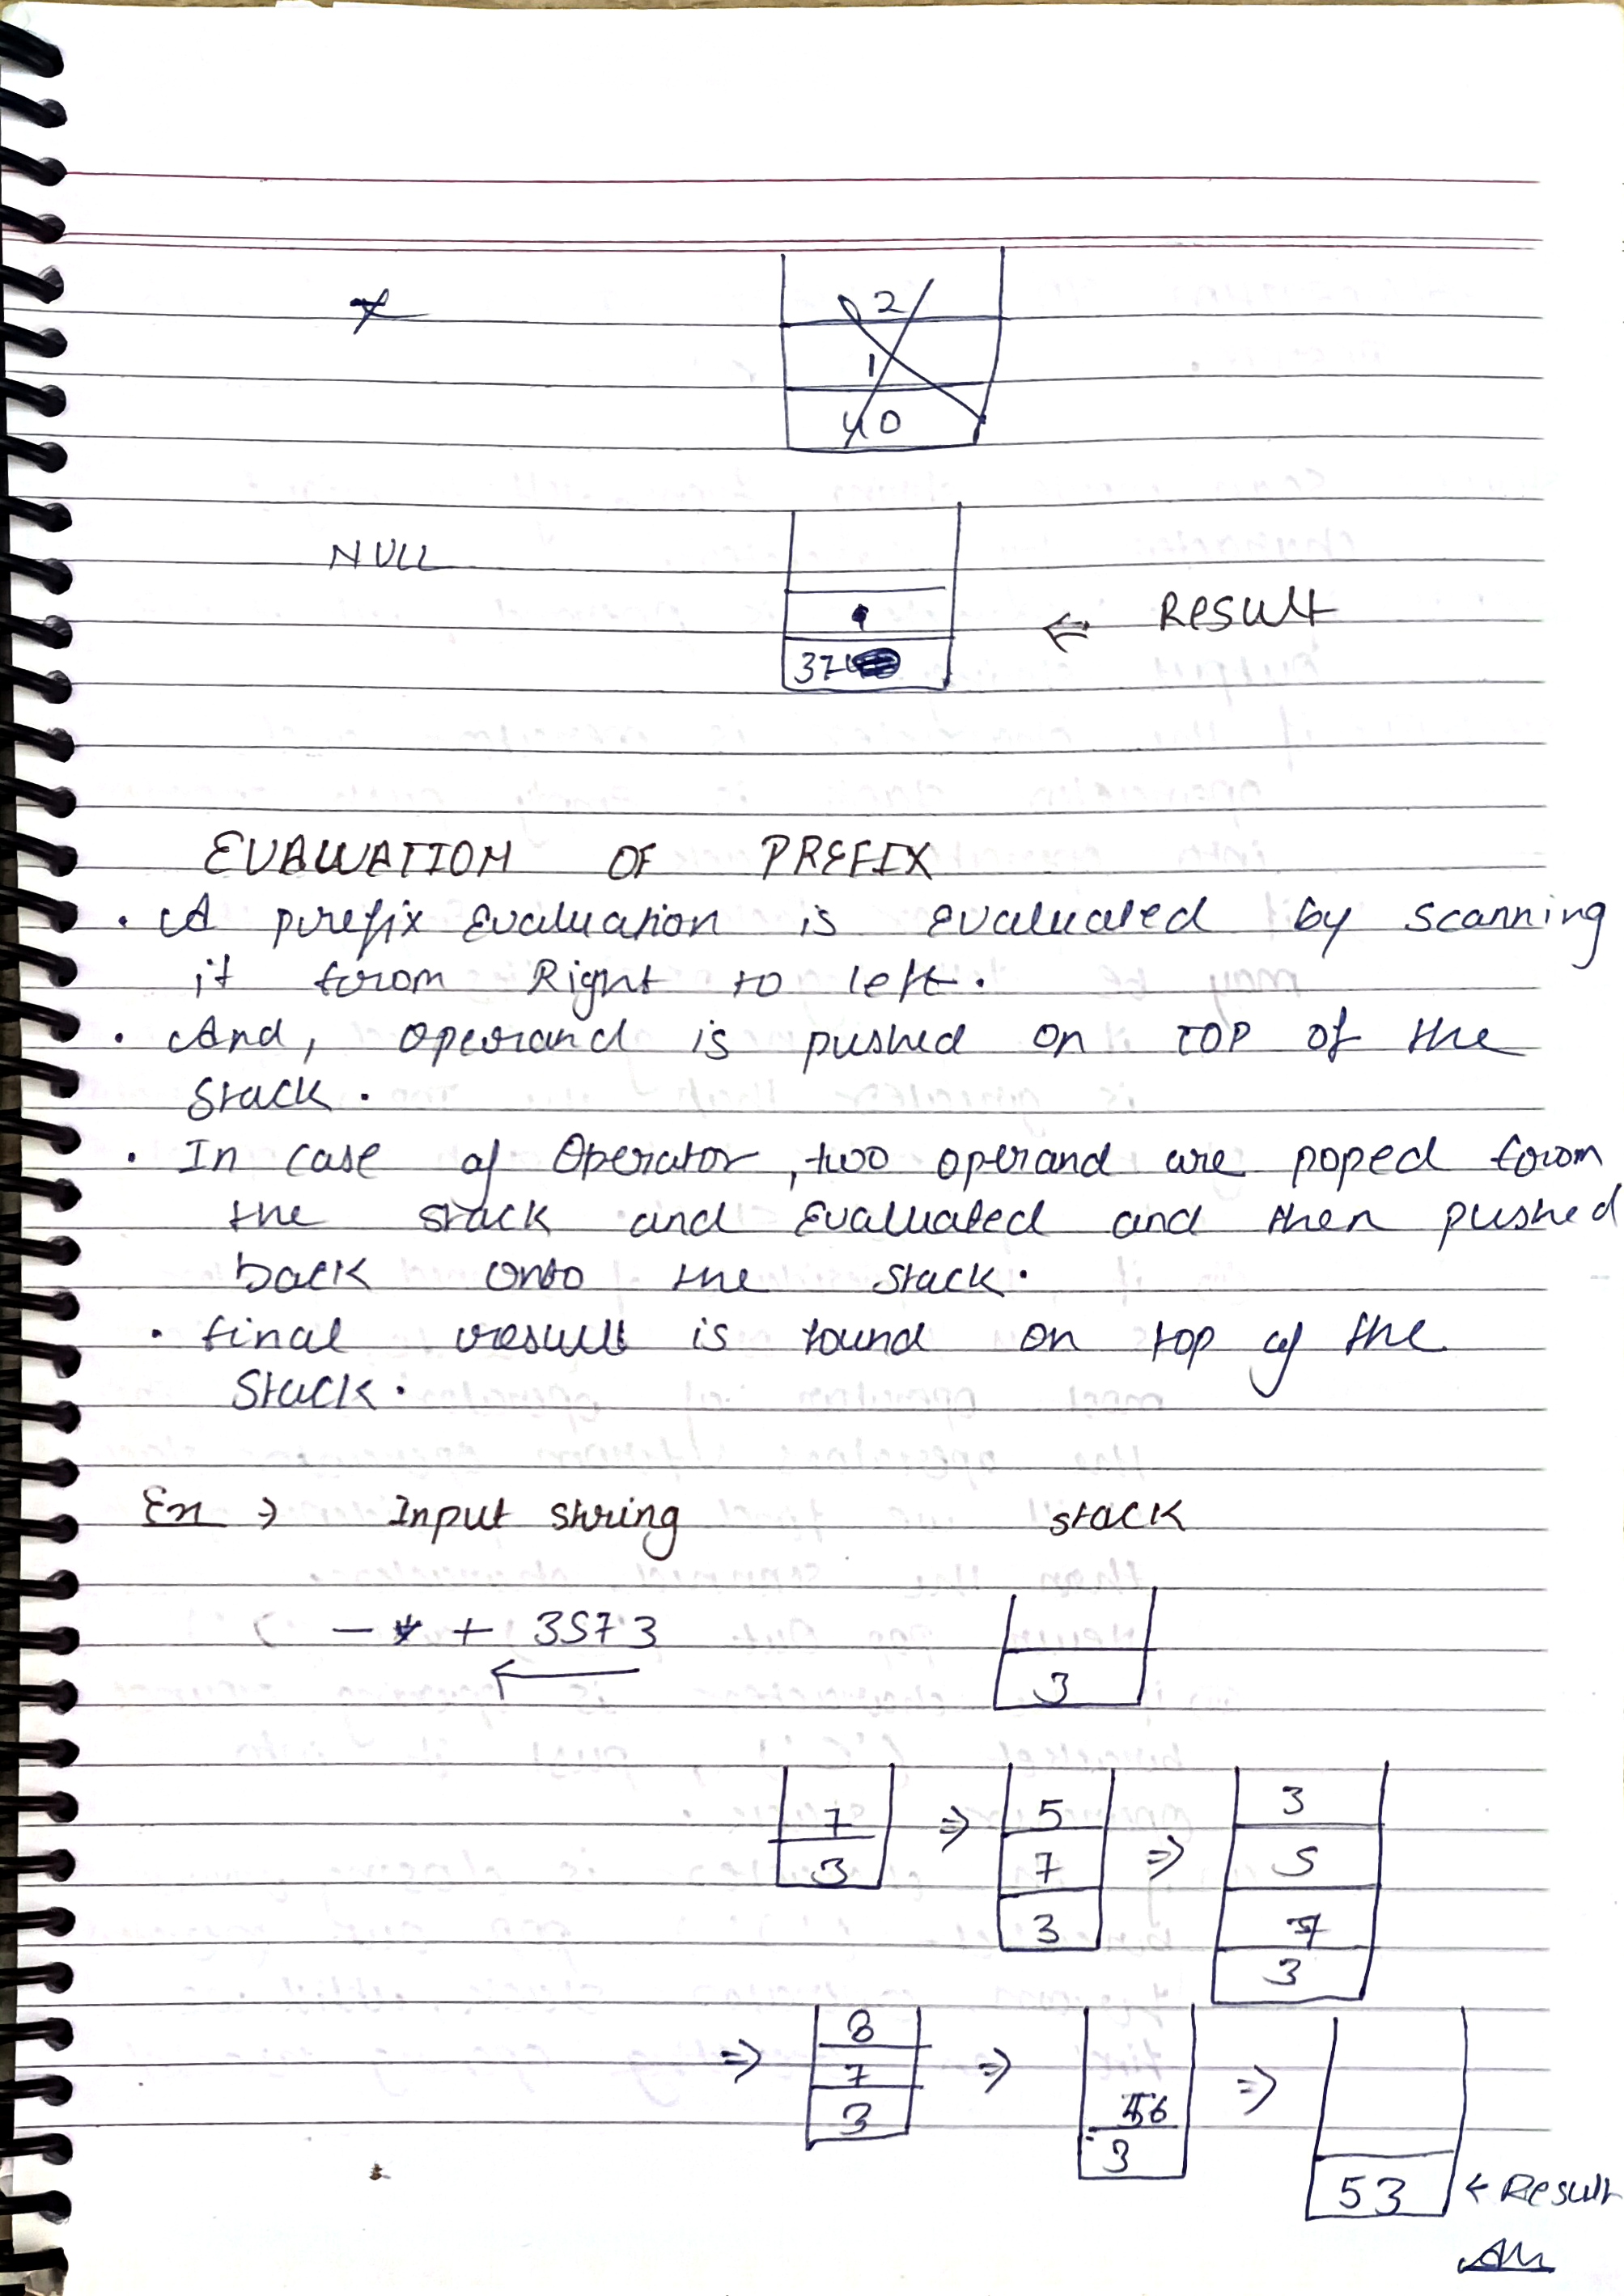 *
2
1
40
NULL
37
⇐ Result
EVALUATION OF PREFIX
• A prefix Evaluation is Evaluated by scanning
it from Right to left.
• And, operand is pushed on TOP of the
stack.
• In case of Operator, two operand are poped from
the stack and Evaluated and then pushed
back onto the stack.
• final result is found on top of the
Stack.
Ex → Input string stack
- * + 3573
3
7 ⇒ 5 ⇒ 3
3 7 5
3 7
3
⇒ 8 ⇒ 56 ⇒
7 3
3
53 ← Result